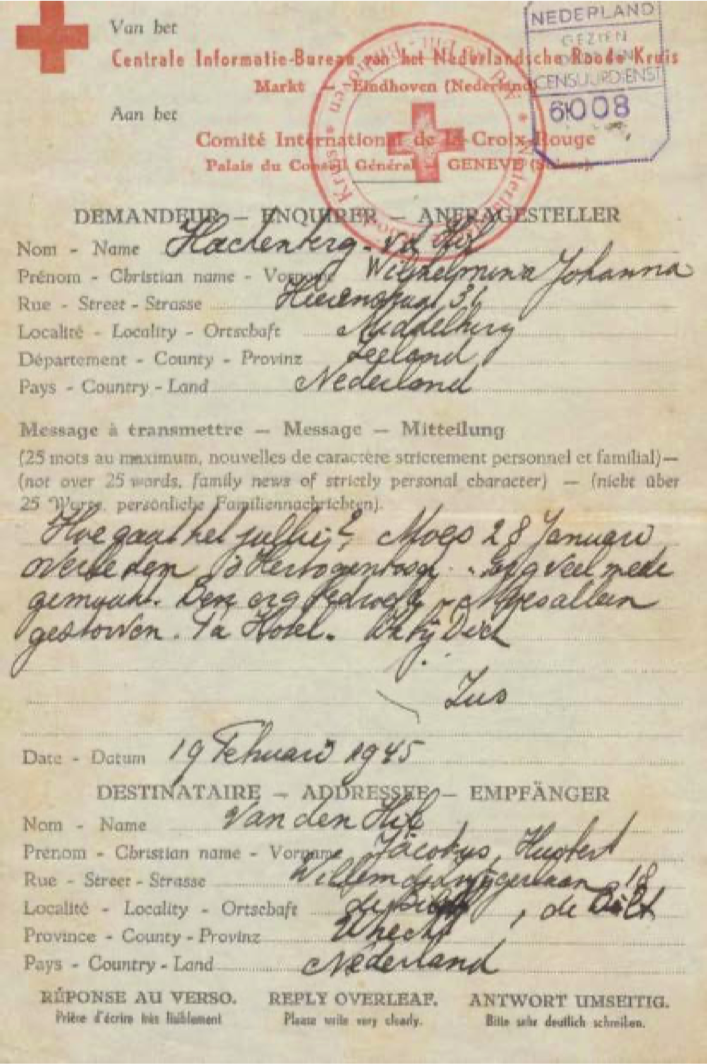 Van het
Centrale Informatie-Bureau van het Nederlandsche Roode Kruis
Markt 1 Eindhoven (Nederland)
Aan het
Comité International de la Croix-Rouge
Palais du Conseil Général — GENEVE (Suisse).
NEDERLAND
GEZIEN
DOOR DEN
CENSUURDIENST
6008
DEMANDEUR — ENQUIRER — ANFRAGESTELLER
Nom - Name Hachenberg - v.d.
Prénom - Christian name - Vorname Wilhelmina Johanna
Rue - Street - Strasse 31
Localité - Locality - Ortschaft Middelburg
Département - County - Provinz Zeeland
Pays - Country - Land Nederland
Message à transmettre — Message — Mitteilung
(25 mots au maximum, nouvelles de caractère strictement personnel et familial)—
(not over 25 words, family news of strictly personal character) — (nicht über
25 Worte, persönliche Familiennachrichten).
Hoe gaat het jullie? Moes 28 Januari
overleden 's Hertogenbosch. veel mede
gemaakt. Ben erg bedroefd. Moes alleen
gestorven. Hotel.
Zus
Date - Datum 19 Februari 1945
DESTINATAIRE — ADDRESSEE — EMPFÄNGER
Nom - Name Van den
Prénom - Christian name - Vorname Jacobus, Huybert
Rue - Street - Strasse Willem de zwijgerlaan 18
Localité - Locality - Ortschaft , de Bilt
Province - County - Provinz Utrecht
Pays - Country - Land Nederland
RÉPONSE AU VERSO. REPLY OVERLEAF. ANTWORT UMSEITIG.
Prière d'écrire très lisiblement Please write very clearly. Bitte sehr deutlich schreiben.